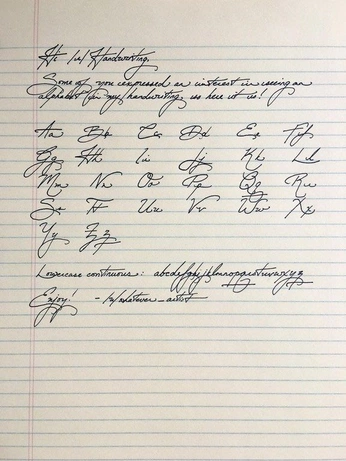 Hi /r/Handwriting,
Some of you expressed an interest in seeing an
alphabet for my handwriting, so here it is!
Aa Bb Cc Dd Ee Ff
Gg Hh Ii Jj Kk Ll
Mm Nn Oo Pp Qq Rr
Ss Tt Uu Vv Ww Xx
Yy Zz
Lowercase continuous: abcdefghijklmnopqrstuvwxyz
Enjoy! -/u/whatever_artist